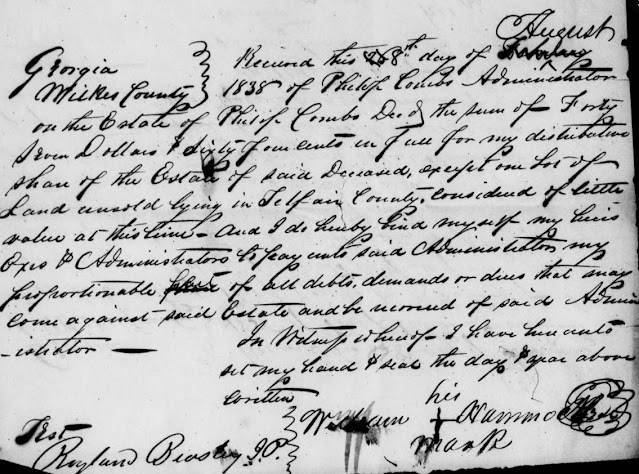 August
Georgia } Received this 28th day of January
Wilkes County } 1838 of Philip Combs Administrator
on the Estate of Philip Combs Decd the sum of Forty
Seven Dollars & Sixty four cents in full for my distributive
share of the Estate of said Deceased, except one Lot of
Land unsold lying in Telfair County, Considered of little
value at this time - And I do hereby bind myself my heirs
Exrs & Administrators to pay unto said Administrator my
proportionable part of all debts, demands or dues that may
come against said Estate and be recovered of said Admin
-istrator —
In Witness whereof I have hereunto
set my hand & seal the day & year above
written
his
William + Hammock Seal
mark
Test
Ryland Beasley J.P.